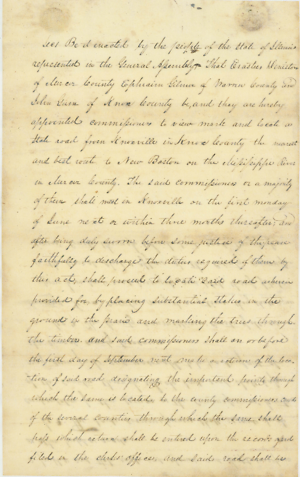 Be it enacted by the people of the State of Illinois
represented in the General Assembly That Erastus
of Mercer County Ephraim Gilmore of Warren County and
Silas of Knox County be, and they are hereby
appointed commissioners to view mark and locate a
State road from Knoxville in Knox County the nearest
and best rout to New Boston on the Mississippi River
in Mercer County. The said commissioners or a majority
of them shall meet in Knoxville on the first monday
of June next or within three months thereafter, and
after being duly sworn before some justice of the peace
faithfully to discharge the duties required of them by
this act, shall proceed to locate said road wherein
provided for by placing substantial stakes in the
ground in the prairie and marking the trees through
the timber and such commissioners shall on or before
the first day of September next make a return of the loca-
tion of said road designating the important points through
which the same is located to the county commissioners court
of the several counties through which the same shall
pass which return shall be entered upon the record and
filed in the clerks offices, and said road shall be